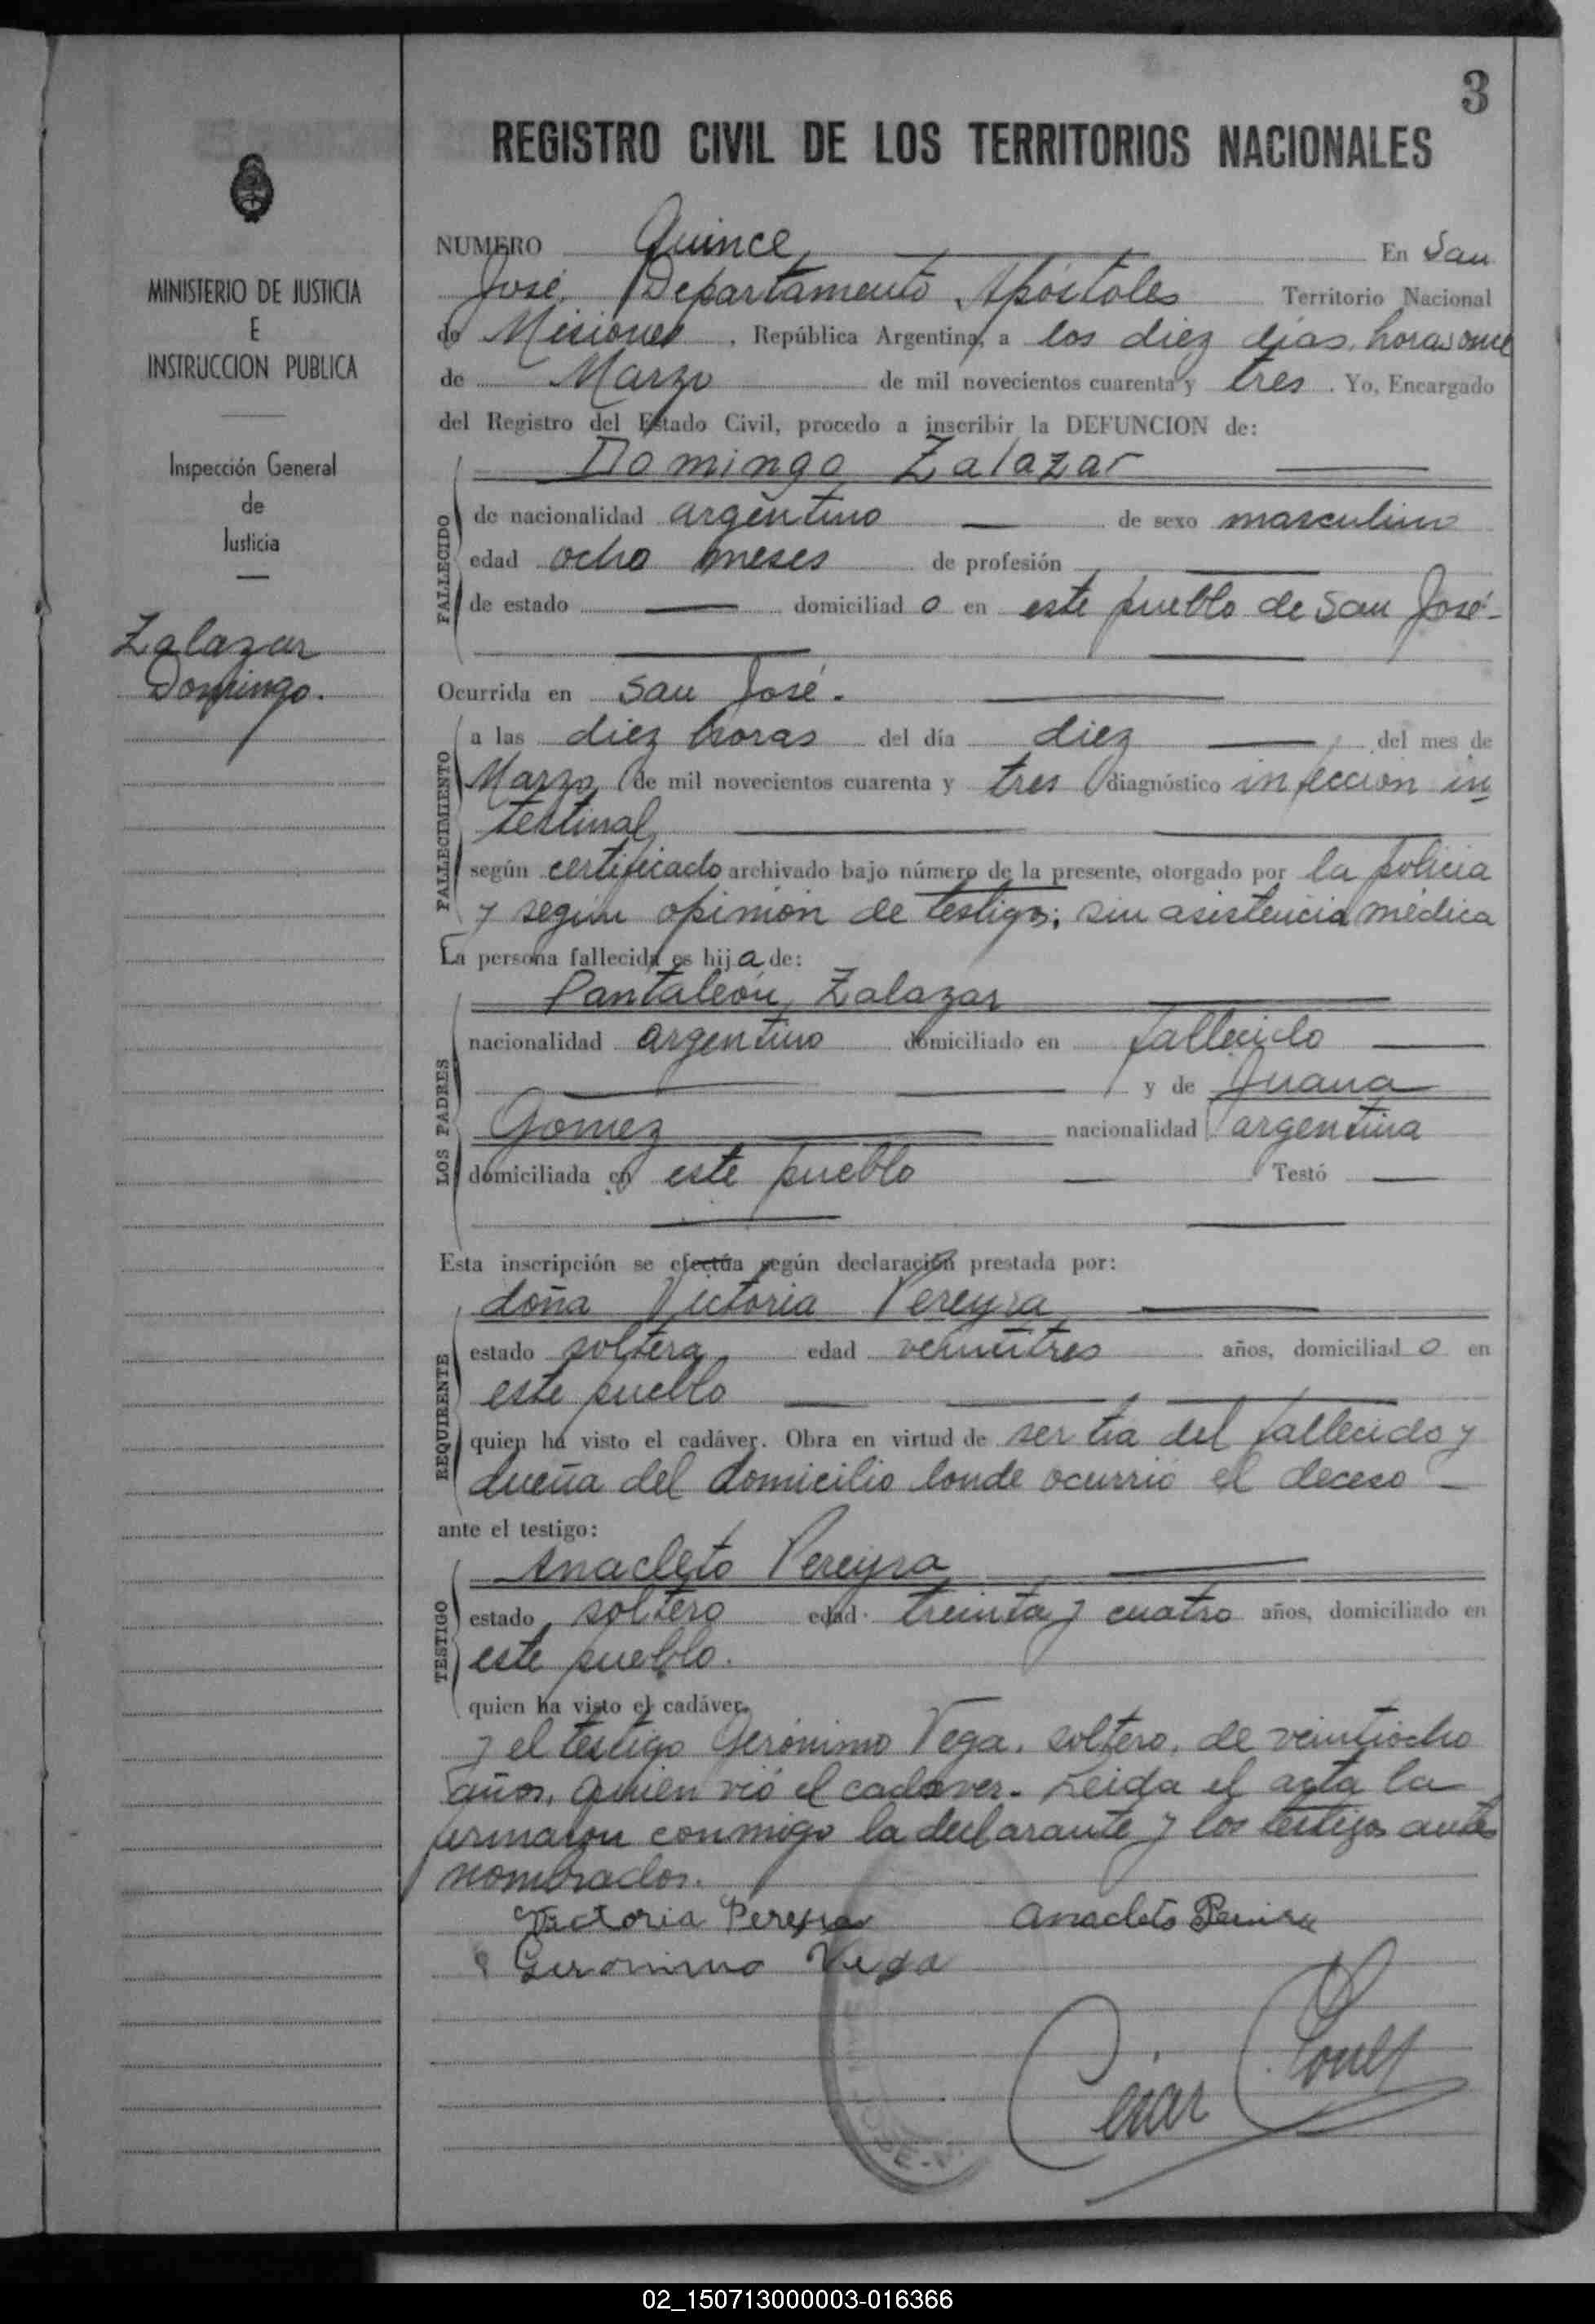 3
REGISTRO CIVIL DE LOS TERRITORIOS NACIONALES
MINISTERIO DE JUSTICIA
E
INSTRUCCION PUBLICA
Inspección General
de
Justicia
Zalazar
Domingo.
NUMERO Quince En San
José, Departamento Apóstoles Territorio Nacional
de Misiones, República Argentina, a los diez días, horas once
de Marzo de mil novecientos cuarenta y tres. Yo, Encargado
del Registro del Estado Civil, procedo a inscribir la DEFUNCION de:
Domingo Zalazar
FALLECIDO
de nacionalidad argentino de sexo masculino
edad ocho meses de profesión
de estado domiciliad o en este pueblo de San José-
Ocurrida en San José.
FALLECIMIENTO
a las diez horas del día diez del mes de
Marzo de mil novecientos cuarenta y tres diagnóstico infección in
testinal
según certificado archivado bajo número de la presente, otorgado por la policia
y según opinión de testigos; sin asistencia médica
La persona fallecida es hij a de:
LOS PADRES
Pantaleón Zalazar
nacionalidad argentino domiciliado en fallecido
y de Juana
Gomez nacionalidad argentina
domiciliada en este pueblo Testó
Esta inscripción se efectúa según declaración prestada por:
REQUIRENTE
doña Victoria Pereyra
estado soltera edad veintitres años, domiciliad o en
este pueblo
quien ha visto el cadáver. Obra en virtud de ser tia del fallecido y
dueña del domicilio donde ocurrió el deceso
ante el testigo:
TESTIGO
Anacleto Pereyra
estado soltero edad treinta y cuatro años, domiciliado en
este pueblo.
quien ha visto el cadáver.
y el testigo Gerónimo Vega, soltero, de veintiocho
años, quien vió el cadaver. Leida el acta la
firmaron conmigo la declarante y los testigos antes
nombrados.
Victoria Pereyra Anacleto Pereira
Geronimo Vega
César
02_150713000003-016366